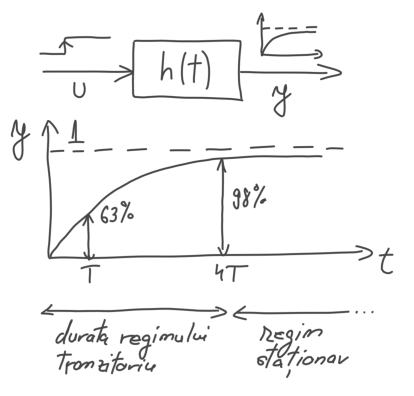 h(t)
U
y
y
1
63%
98%
T
4T
t
durata regimului
tranzitoriu
regim
staționar
...